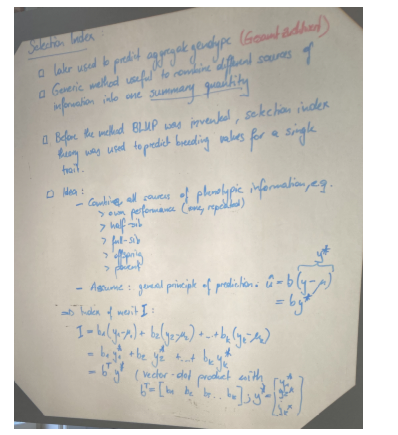 Selection Index
□ Later used to predict aggregate genotype (Gesamtzuchtwert)
□ Generic method useful to combine different sources of
information into one summary quantity
□ Before the method BLUP was invented, selection index
theory was used to predict breeding values for a single
trait.
□ Idea:
- Combine all sources of phenotypic information, e.g.
> own performance (one, repeated)
> half-sib
> full-sib
> offspring
> parent
- Assume: general principle of prediction: û = b(y-μ)
y*
= by*
=> Index of merit I:
I = b₁(y₁-μ₁) + b₂(y₂-μ₂) + ... + bₖ(yₖ-μₖ)
= b₁y₁* + b₂y₂* + ... + bₖyₖ*
= bᵀy* (vector-dot product with
bᵀ = [b₁ b₂ ... bₖ]; y* =